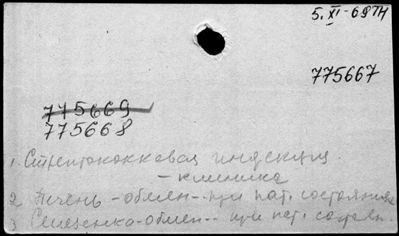 5. XI - 69 ТН
775667
775669
775668
1. Стрептококковая инфекция
- клиника
2 Печень - обмен - при пат. состояниях
3 Селезенка - обмен - при пат. состоян.